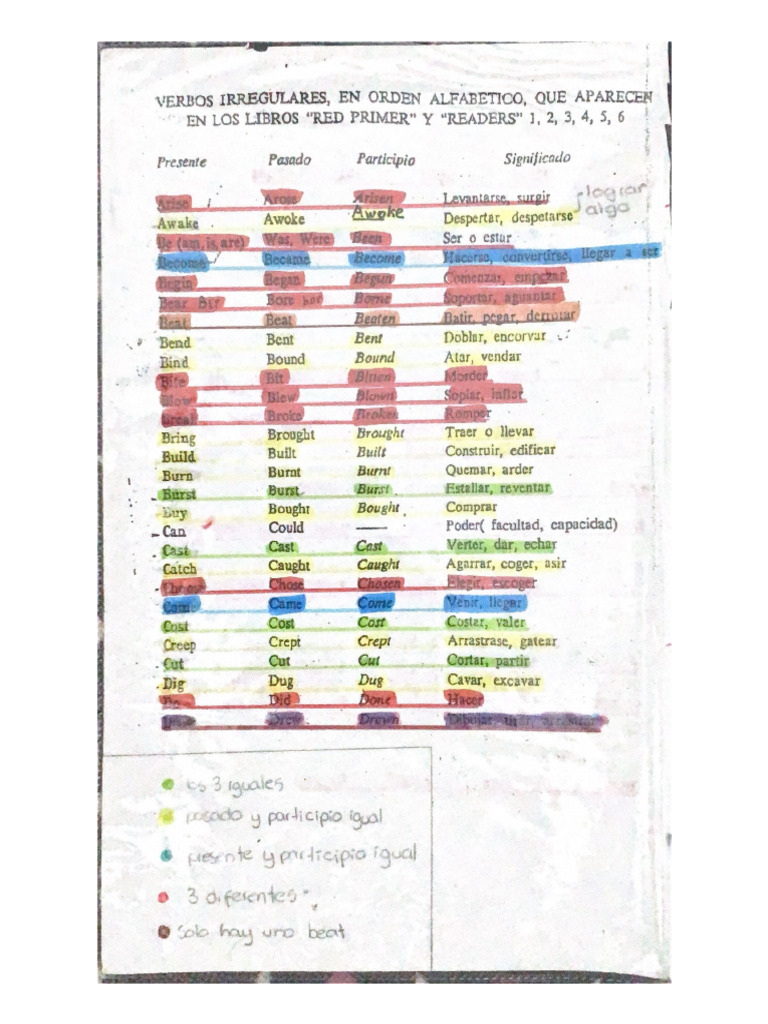 VERBOS IRREGULARES, EN ORDEN ALFABETICO, QUE APARECEN
EN LOS LIBROS "RED PRIMER" Y "READERS" 1, 2, 3, 4, 5, 6
Presente Pasado Participio Significado
Arise Arose Arisen Levantarse, surgir lograr algo
Awake Awoke Awoke Despertar, despetarse
Be (am, is, are) Was, Were Been Ser o estar
Become Became Become Hacerse, convertirse, llegar a ser
Begin Began Begun Comenzar, empezar
Bear Bore Borne Soportar, aguantar
Beat Beat Beaten Batir, pegar, derrotar
Bend Bent Bent Doblar, encorvar
Bind Bound Bound Atar, vendar
Bite Bit Bitten Morder
Blow Blew Blown Soplar, inflar
Break Broke Broken Romper
Bring Brought Brought Traer o llevar
Build Built Built Construir, edificar
Burn Burnt Burnt Quemar, arder
Burst Burst Burst Estallar, reventar
Buy Bought Bought Comprar
Can Could — Poder( facultad, capacidad)
Cast Cast Cast Verter, dar, echar
Catch Caught Caught Agarrar, coger, asir
Choose Chose Chosen Elegir, escoger
Come Came Come Venir, llegar
Cost Cost Cost Costar, valer
Creep Crept Crept Arrastrase, gatear
Cut Cut Cut Cortar, partir
Dig Dug Dug Cavar, excavar
Do Did Done Hacer
Drew Drewn Dibujar, tirar, arrastrar
los 3 iguales
pasado y participio igual
presente y participio igual
3 diferentes
Solo hay uno beat